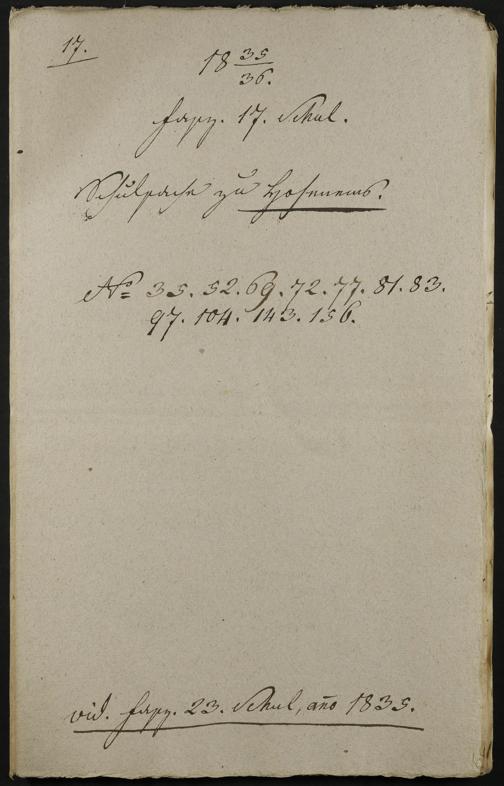 17.
18 35/36.
Fasz. 17. Schul.
Schulsache zu Hohenems.
No 35. 52. 69. 72. 77. 81. 83.
97. 104. 143. 156.
vid. Fasz. 23. Schul, año 1835.